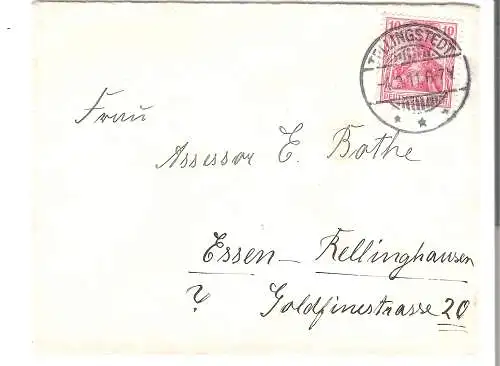 10 10
TELLINGSTEDT
Frau
Assessor E. Bothe
Essen – Rellinghausen
? Goldfinestrasse 20